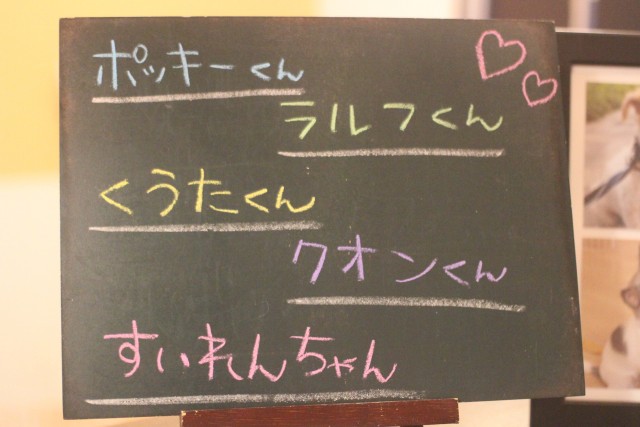 ポッキーくん
ラルフくん
くうたくん
クオンくん
すいれんちゃん